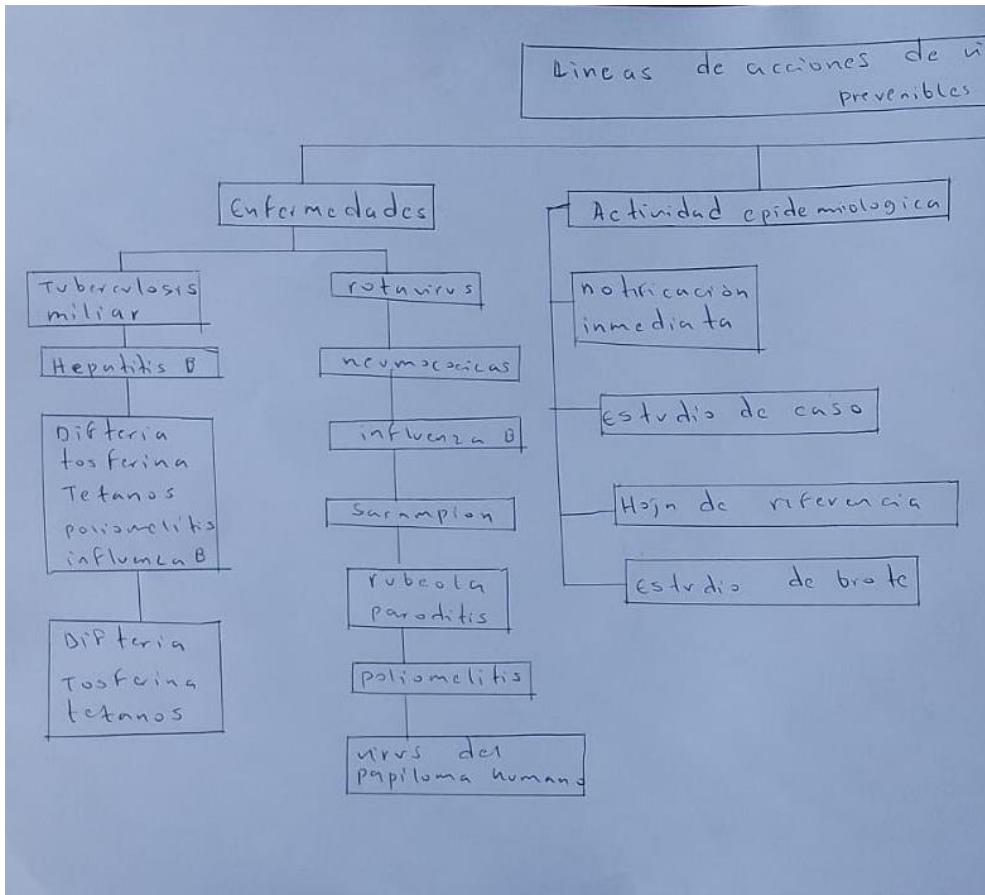 Lineas de acciones de vi
prevenibles
Enfermedades
Tuberculosis
miliar
Hepatitis B
Difteria
tosferina
Tetanos
poliomelitis
influenza B
Difteria
Tosferina
tetanos
rotavirus
neumococicas
influenza B
Sarampion
rubeola
paroditis
poliomelitis
virus del
papiloma humano
Actividad epidemiologica
notificación
inmediata
estudio de caso
Hoja de riferencia
estudio de brote